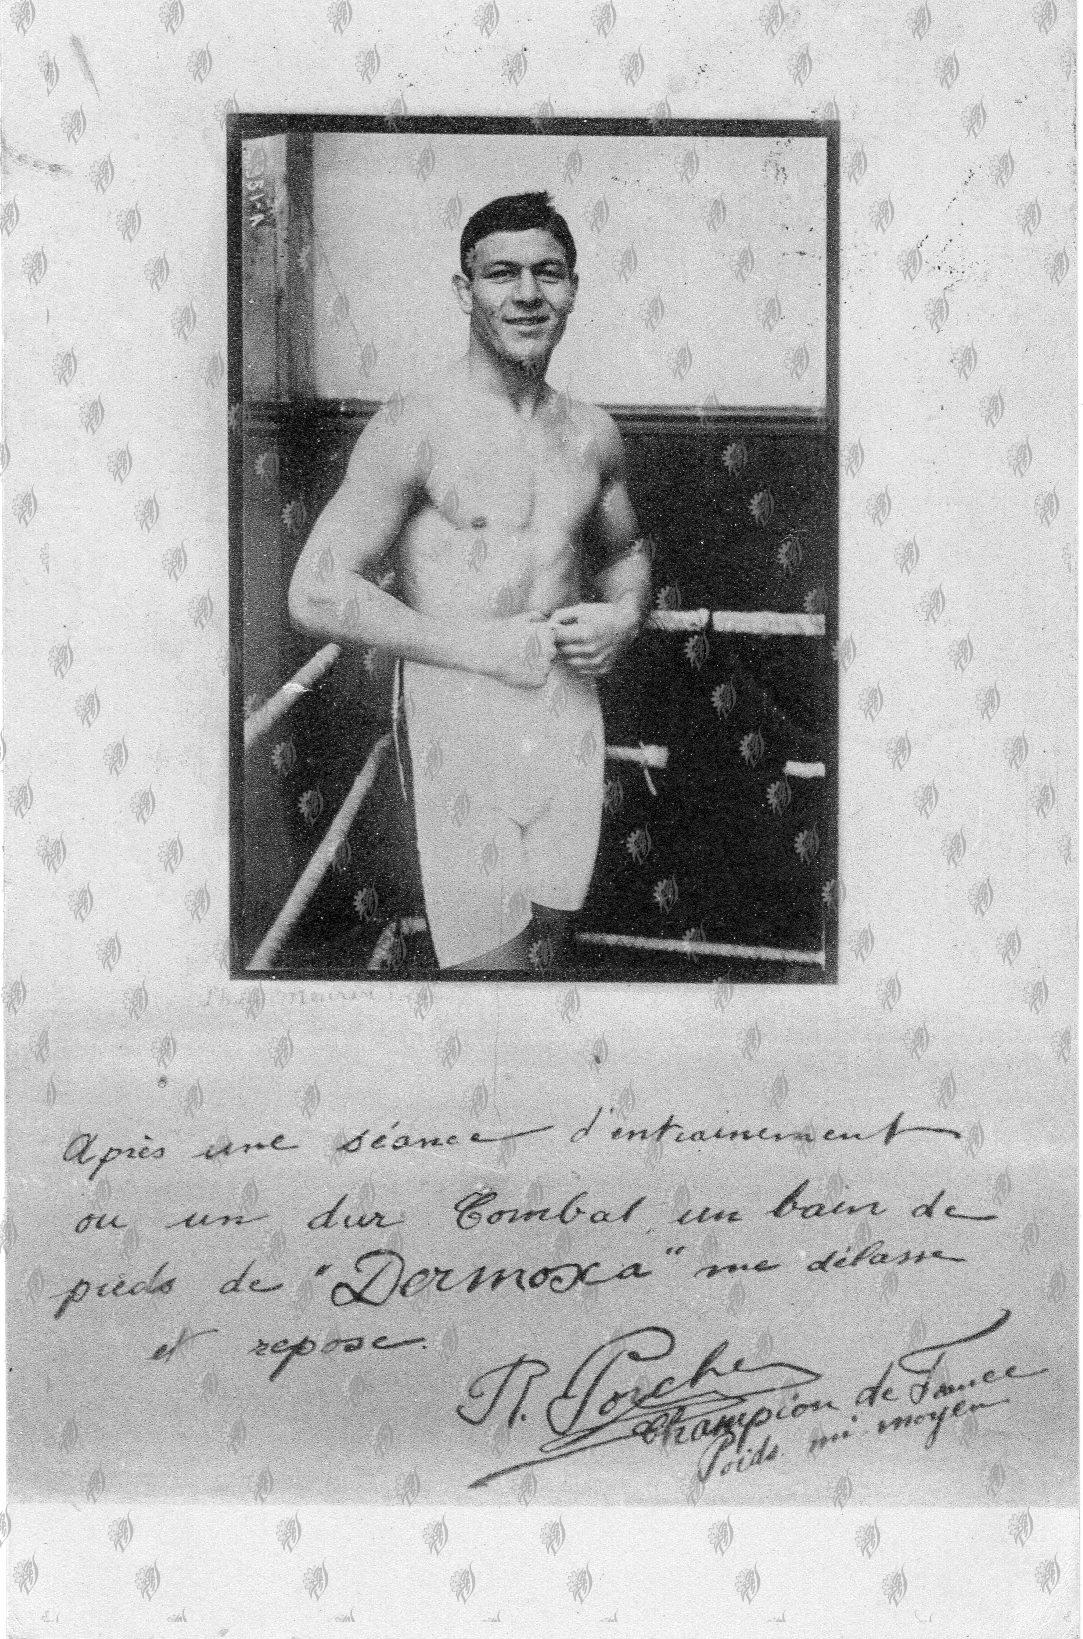 Après une séance d'entrainement
ou un dur Combat un bain de
pieds de "Dermoxa" me délasse
et repose.
R. Porcher
Champion de France
Poids mi-moyen